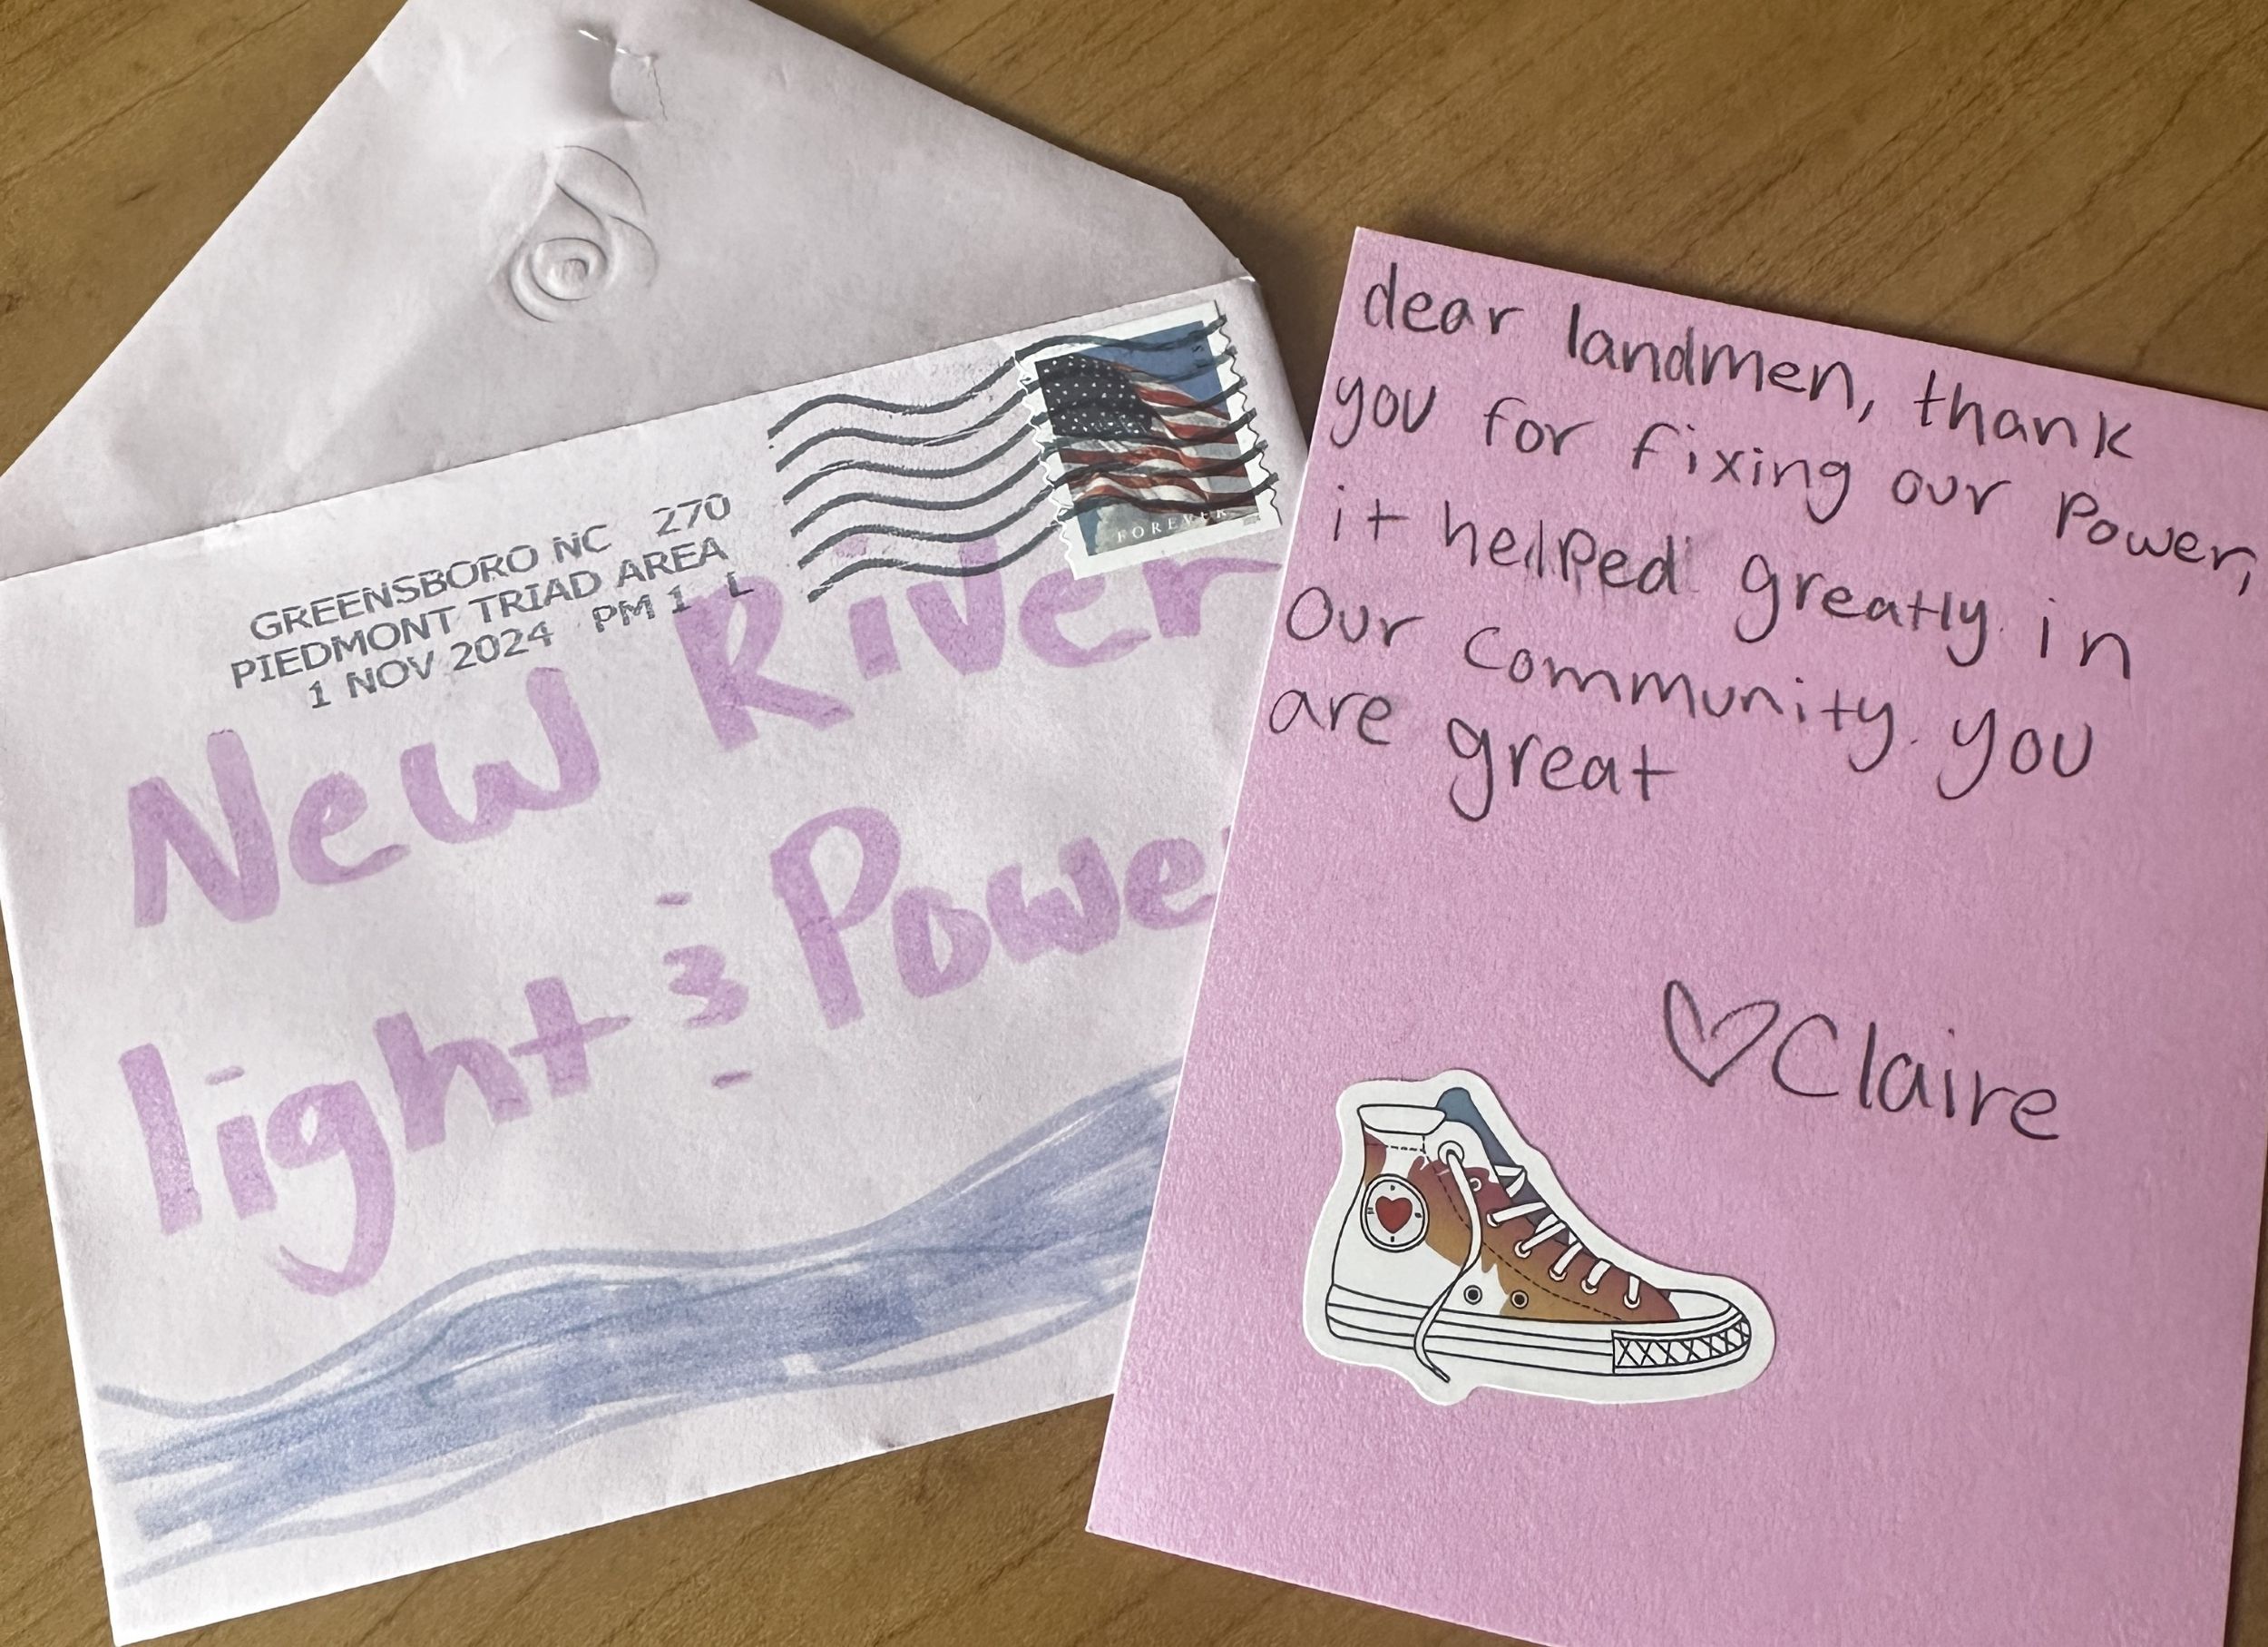 GREENSBORO NC 270
PIEDMONT TRIAD AREA
1 NOV 2024 PM 1 L
FOREVER
New River
light & Powe
dear landmen, thank
you for fixing our Power,
it helped greatly in
Our Community. you
are great
♡Claire